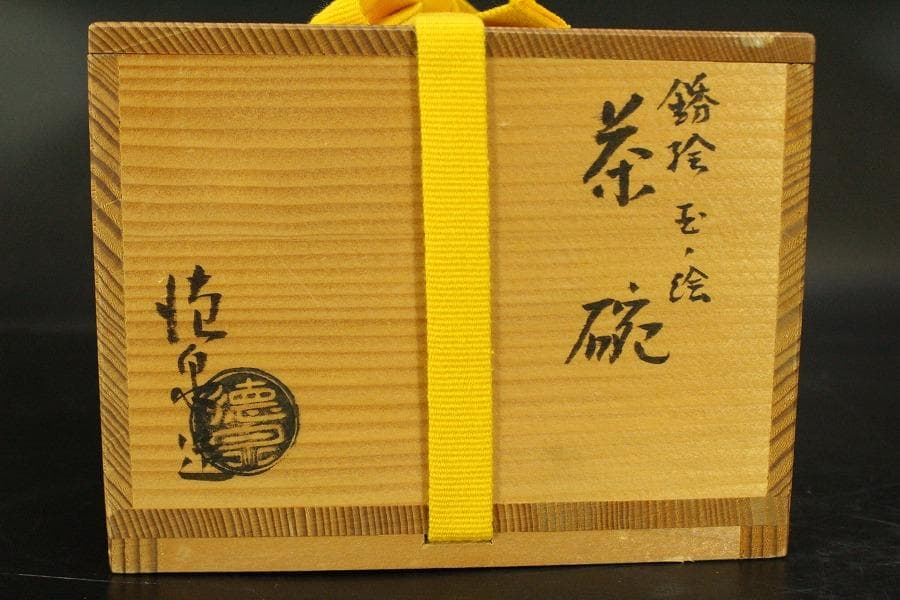 錆絵 玉ノ絵
茶碗
徳泉造
德泉